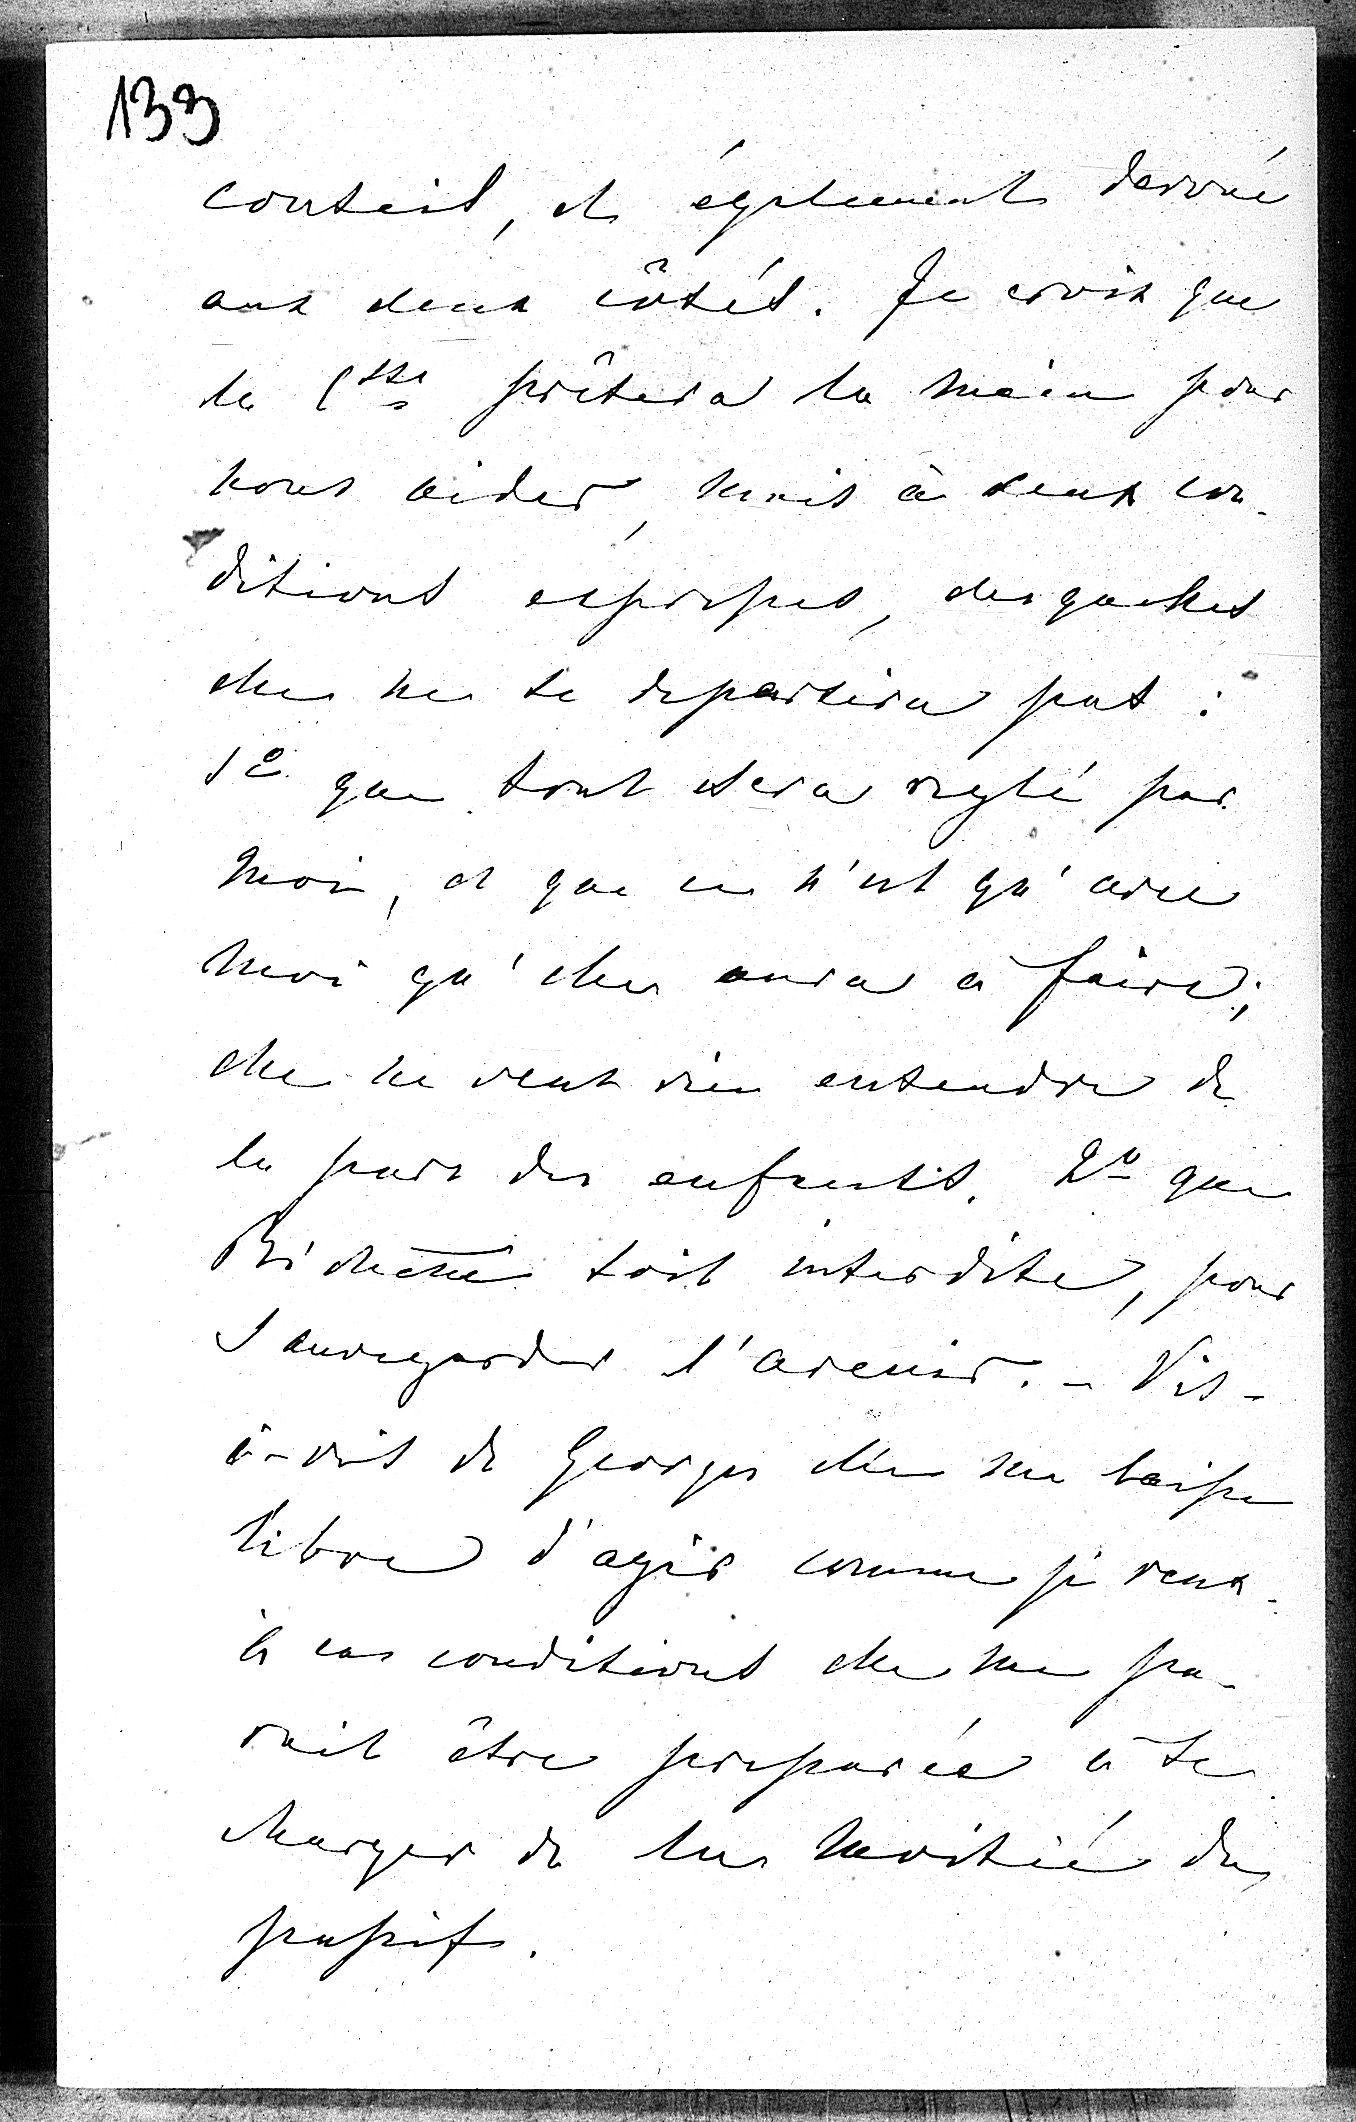 133
conseil, et également dévoué
aux deux côtés. Je crois que
la Ctsse prêtera la main pour
nous aider, mais à deux con-
ditions expresses, desquelles
elle ne se departira pas :
1º que tout sera reglé par
moi, et que ce n'est qu'avec
moi qu'elle aura à faire;
elle ne veut rien entendre de
la part des enfants. 2º que
soit interdite, pour
sauvegarder l'avenir. - Vis-
à-vis de Georges elle me laisse
libre d'agir comme je veux.
à ces conditions elle me pa-
rait être preparée à se
charger de la moitié du
passif.